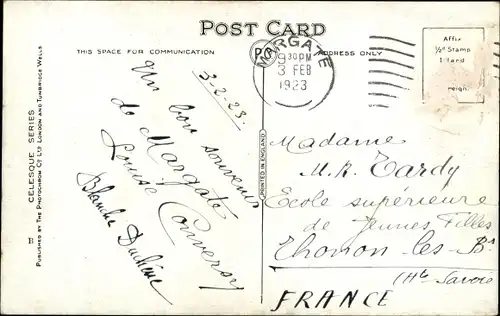 POST CARD
THIS SPACE FOR COMMUNICATION
ADDRESS ONLY
MARGATE
9 30 PM
3 FEB
1923
Affix
½d Stamp
Inland
reign.
CELESQUE SERIES
PUBLISHED BY THE PHOTOCHROM CO LTD LONDON AND TUNBRIDGE WELLS
PRINTED IN ENGLAND
3-2-23.
Un bon souvenir
de Margate
Louise
Blanche
Madame
M. R. Tardy
Ecole supérieure
de Jeunes Filles
Thonon-les-Bs
(Hte Savoie
FRANCE